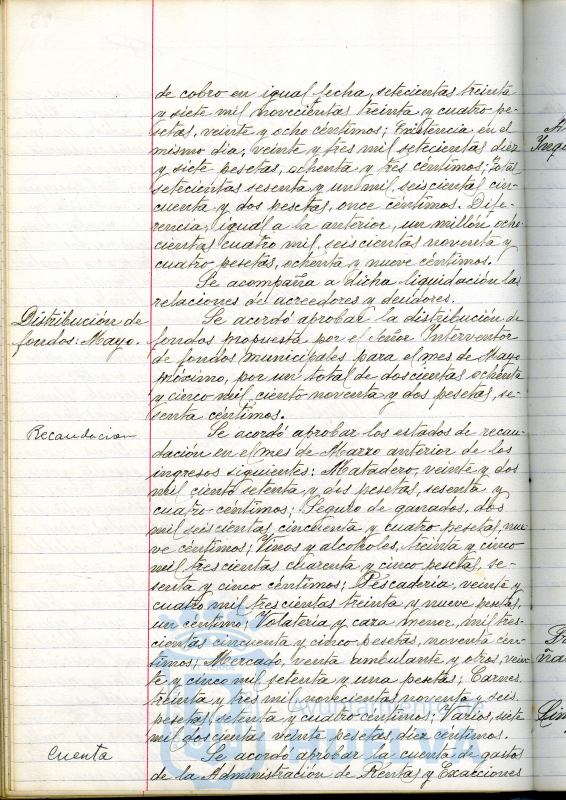 de cobro en igual fecha, setecientas treinta
y siete mil novecientas treinta y cuatro pe-
setas, veinte y ocho céntimos; Existencia en el
mismo dia, veinte y tres mil setecientas diez
y siete pesetas, ochenta y tres céntimos; Total,
setecientas sesenta y un mil, seiscientas cin-
cuenta y dos pesetas, once céntimos. Dife-
rencia, igual a la anterior, un millón ocho-
cientas cuatro mil, seiscientas noventa y
cuatro pesetas, ochenta y nueve céntimos.
Se acompaña a dicha liquidación las
relaciones de acreedores y deudores.
Distribución de
fondos: Mayo.
Se acordó aprobar la distribución de
fondos propuesta por el Señor Interventor
de fondos municipales para el mes de Mayo
próximo, por un total de doscientas ochenta
y cinco mil, ciento noventa y dos pesetas, se-
senta céntimos.
Recaudacion
Se acordó aprobar los estados de recau-
dación en el mes de Marzo anterior de los
ingresos siguientes: Matadero, veinte y dos
mil ciento setenta y dos pesetas, sesenta y
cuatro céntimos; Seguro de ganados, dos
mil seiscientas cincuenta y cuatro pesetas, nue-
ve céntimos; Vinos y alcoholes, treinta y cinco
mil trescientas cuarenta y cinco pesetas, se-
senta y cinco céntimos; Pescadería, veinte y
cuatro mil trescientas treinta y nueve pesetas,
un céntimo; Volatería y caza menor, mil tres-
cientas cincuenta y cinco pesetas, noventa cén-
timos; Mercado, venta ambulante y otros, vein-
te y cinco mil setenta y una pesetas; Carnes,
treinta y tres mil novecientas noventa y seis
pesetas, setenta y cuatro céntimos; Varios, siete
mil doscientas veinte pesetas, diez céntimos.
Cuenta
Se acordó aprobar la cuenta de gastos
de la Administración de Rentas y Exacciones
Ayuntamiento de